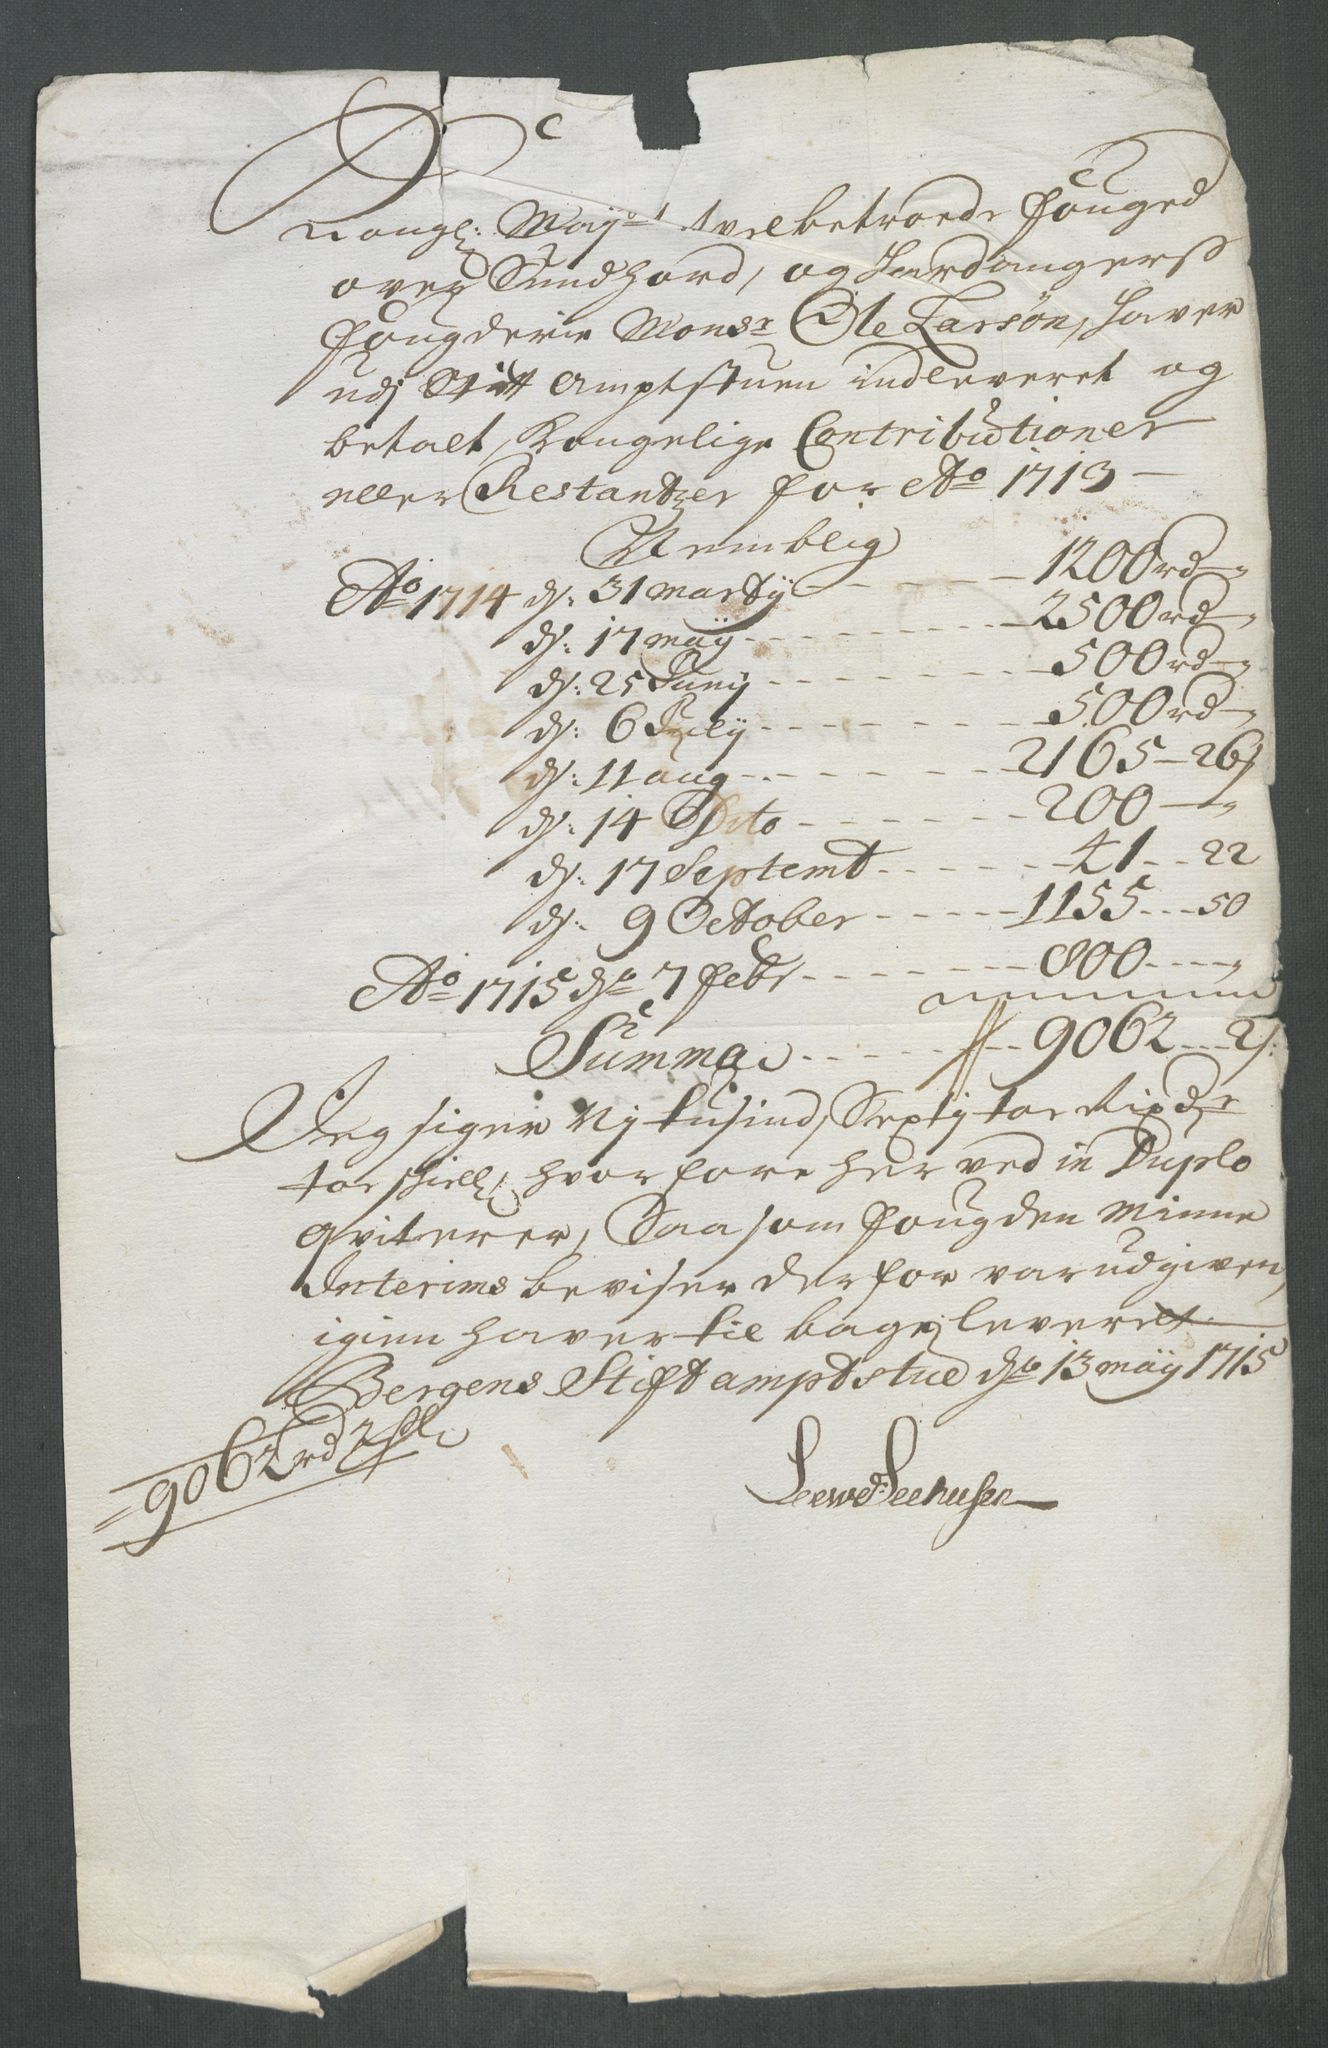 C
Kongl: Mayts velbetroede Fouged
over Sundhord, og Hardangers
Fougderie Monsr Ole Larsøn, haver
udj Stift Amptstuen indleveret og
betalt, Kongelige Contributioner
eller Restantzer for Ao 1713 –
Nemblig
Ao 1714 d: 31 Martij - - - 1200 rd –
d: 17 Maÿ - - - 2500 rd –
d: 25 Junij - - - 500 rd –
d: 6 Julij - - - 500 rd –
d: 11 aug - - - 2165 – 26 ß
d: 14 Dito - - - 200 –
d: 17 Septemb - - - 41 - - 22
d: 9 October - - - 1155 - - 50
Ao 1715 d. 7 Febr - - - 800 - - -
Summa - - - 9062 - - 2 ß:
Jeg siger Nj tusind, Sextj toe Rixdr
toe skill, hvor fore her ved in Duplo
qviterer, Saa som Fougden Minne
Interims beviser derfor var udgiven,
igien haver tilbage leveret
Bergens Stiftamptstue d. 13 Maÿ 1715
9062 rd 2 sl
Leewd: Seehusen